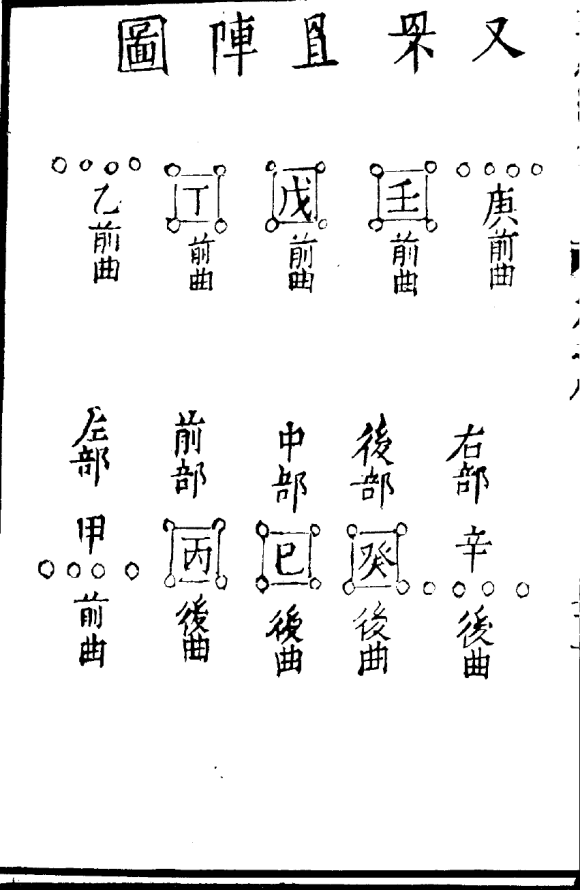 又罘罝陣圖
庚前曲
壬前曲
戊前曲
丁前曲
乙前曲
右部辛後曲
後部癸後曲
中部巳後曲
前部丙後曲
左部甲前曲